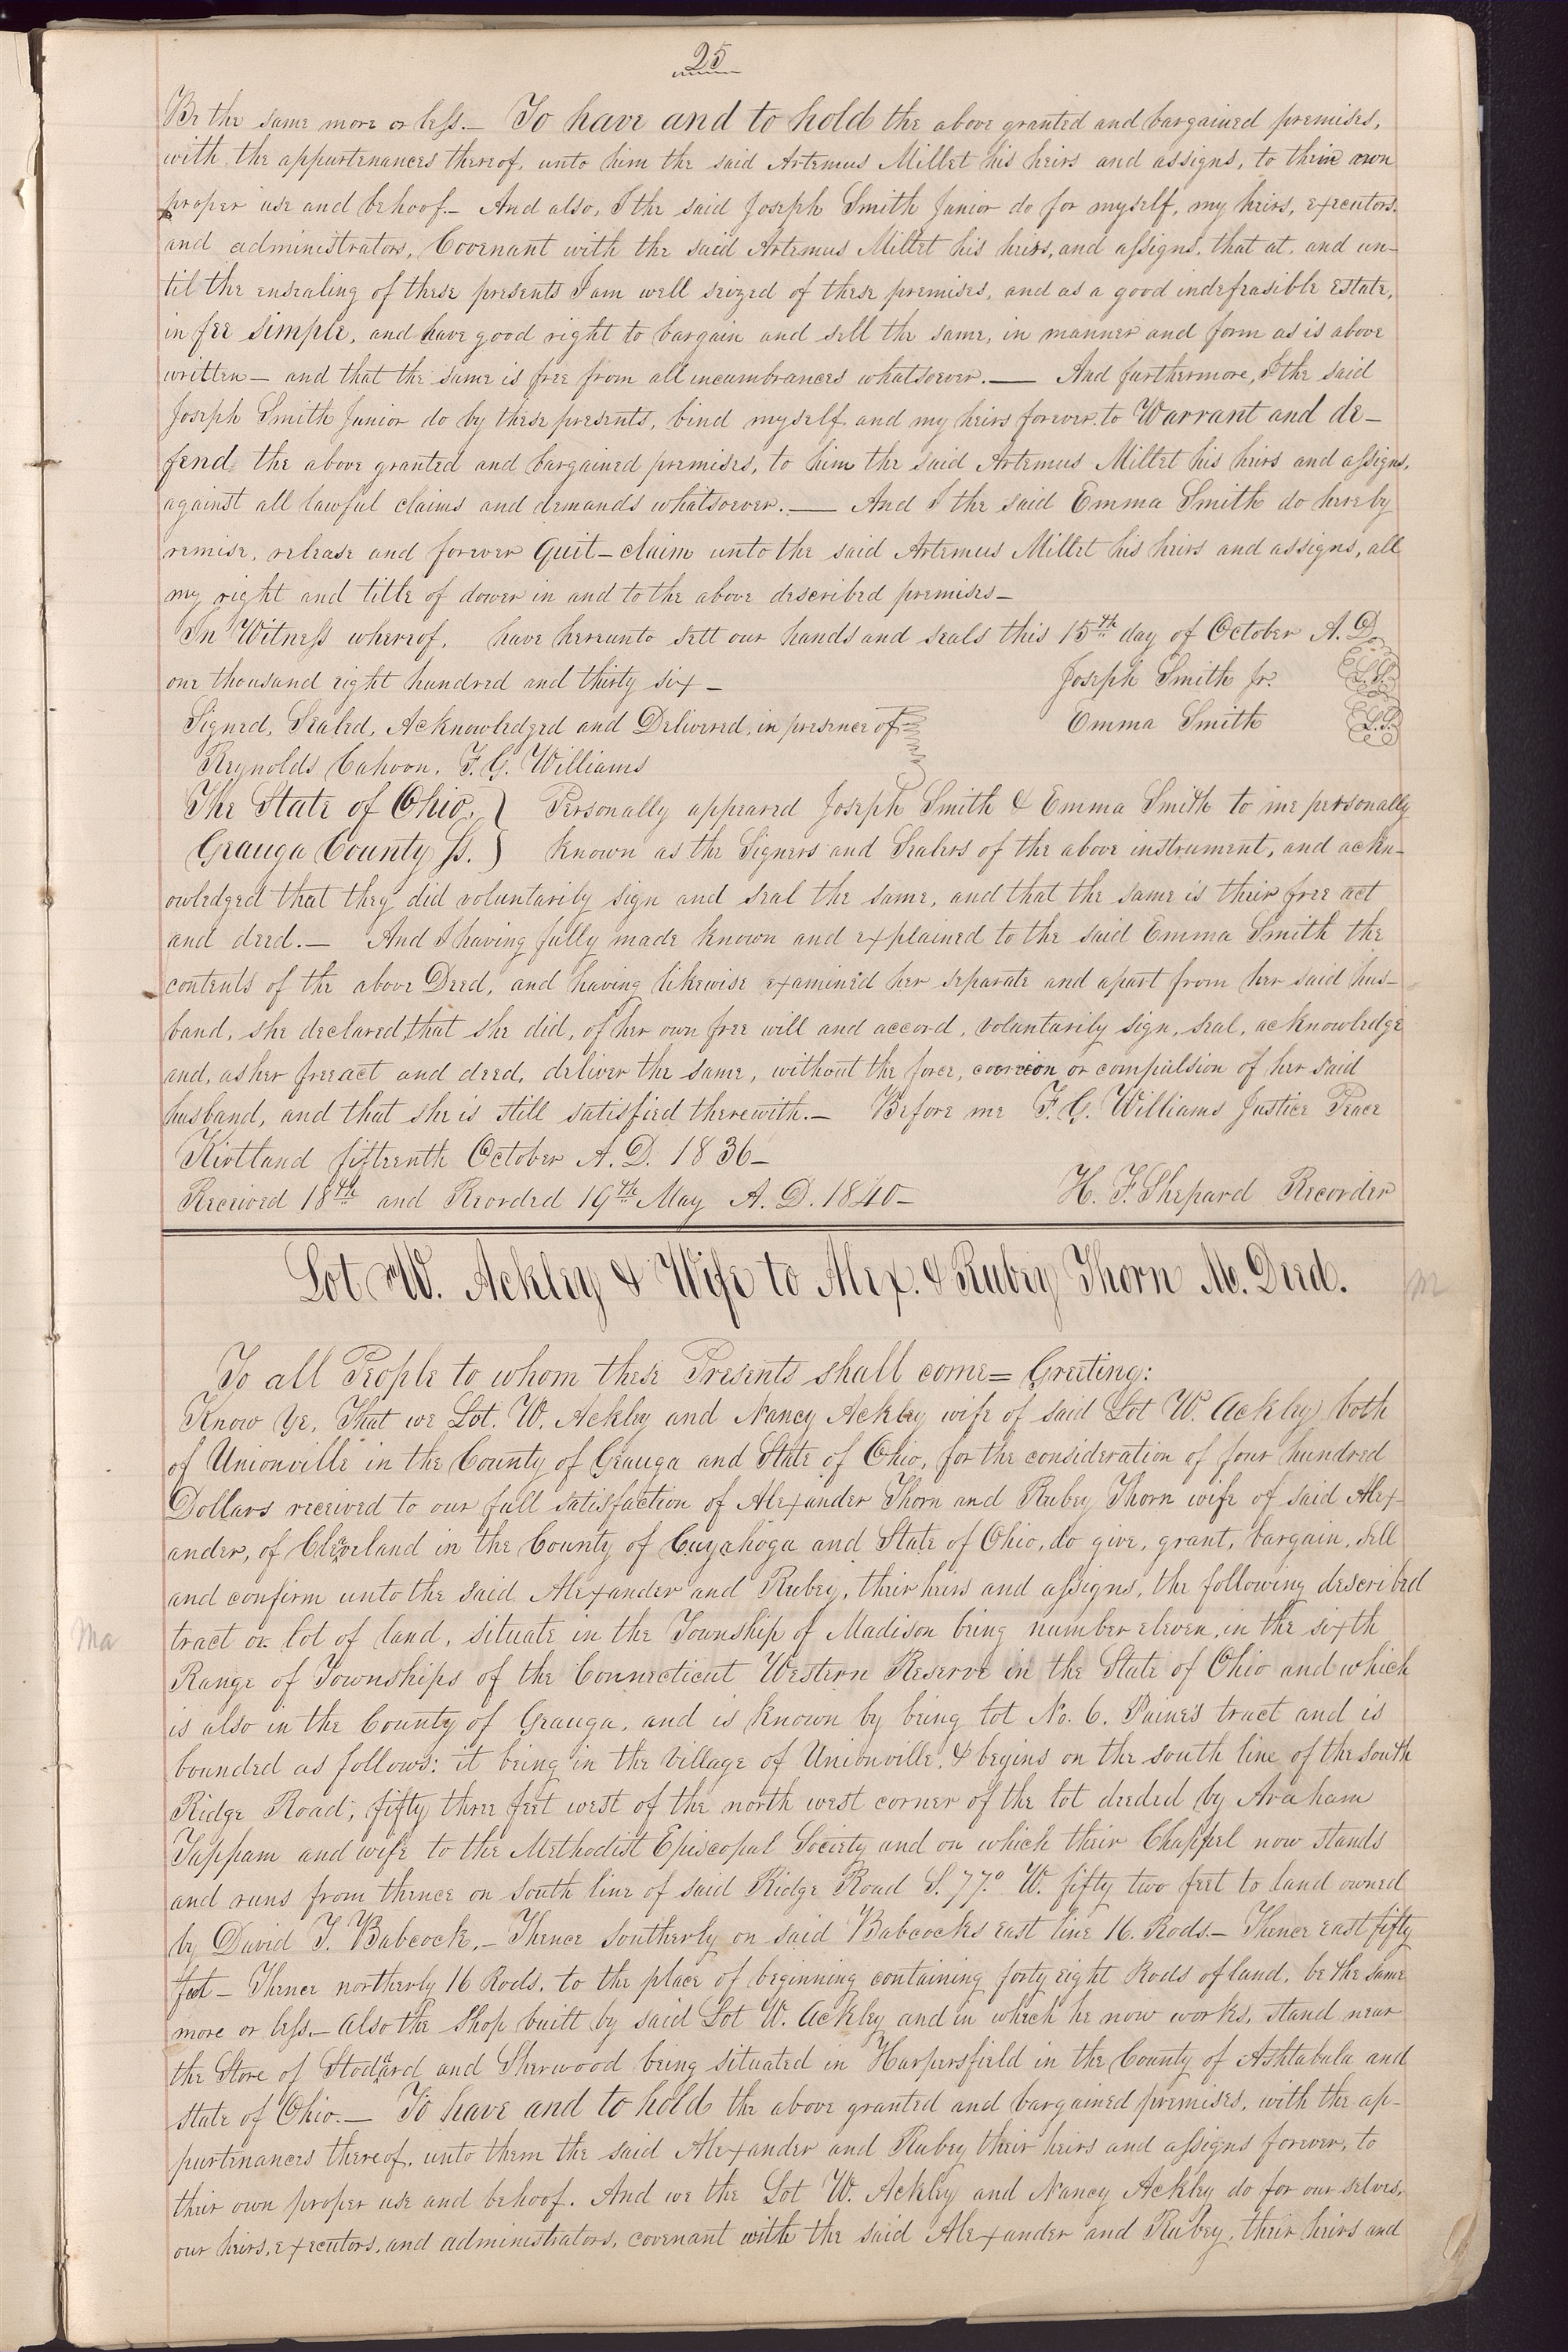 25
Be the same more or less.— To have and to hold the above granted and bargained premises,
with the appurtenances thereof, unto him the said Artemus Millet his heirs and assigns, to their own
proper use and behoof.— And also, I the said Joseph Smith Junior do for myself, my heirs, executors,
and administrators, Covenant with the said Artemus Millet his heirs, and assigns, that at, and un-
til the ensealing of these presents I am well seized of these premises, and as a good indefeasible estate,
in fee simple, and have good right to bargain and sell the same, in manner and form as is above
written — and that the same is free from all incumbrances whatsoever.— And furthermore, I the said
Joseph Smith Junior do by these presents, bind myself and my heirs forever to Warrant and de-
fend the above granted and bargained premises, to him the said Artemus Millet his heirs and assigns,
against all lawful claims and demands whatsoever.— And I the said Emma Smith do hereby
remise, release and forever Quit-claim unto the said Artemus Millet his heirs and assigns, all
my right and title of dower in and to the above described premises—
In Witness whereof, have hereunto sett our hands and seals this 15th day of October A.D.
one thousand eight hundred and thirty six — Joseph Smith Jr. L.S.
Signed, Sealed, Acknowledged and Delivered, in presence of Emma Smith L.S.
Reynolds Cahoon. F. G. Williams
The State of Ohio, } Personally appeared Joseph Smith & Emma Smith to me personally
Geauga County ss. } known as the Signers and Sealers of the above instrument, and ackn-
owledged that they did voluntarily sign and seal the same, and that the same is their free act
and deed.— And I having fully made known and explained to the said Emma Smith the
contents of the above Deed, and having likewise examined her separate and apart from her said hus-
band, she declared that she did, of her own free will and accord, voluntarily sign, seal, acknowledge
and, as her free act and deed, deliver the same, without the force, coercion or compulsion of her said
husband, and that she is still satisfied therewith.— Before me F. G. Williams Justice Peace
Kirtland fifteenth October A.D. 1836—
Received 18th and Recorded 19th May A.D. 1840— H. F. Shepard Recorder
Lot W. Ackley & Wife to Alex. & Rubey Thorn M. Deed.
m
To all People to whom these Presents shall come= Greeting:
Know Ye, That we Lot. W. Ackley and Nancy Ackley wife of said Lot W. Ackley both
of Unionville in the County of Geauga and State of Ohio, for the consideration of four hundred
Dollars received to our full satisfaction of Alexander Thorn and Rubey Thorn wife of said Alex-
ander, of Cleveland in the County of Cuyahoga and State of Ohio, do give, grant, bargain, sell
and confirm unto the said Alexander and Rubey, their heirs and assigns, the following described
Ma
tract or lot of land, situate in the Township of Madison being number eleven, in the sixth
Range of Townships of the Connecticut Western Reserve in the State of Ohio and which
is also in the County of Geauga, and is known by being lot No. 6. Paine's tract and is
bounded as follows: it being in the Village of Unionville, & begins on the south line of the south
Ridge Road, fifty three feet west of the north west corner of the lot deeded by Araham
Tappam and wife to the Methodist Episcopal Society and on which their Chappel now stands
and runs from thence on south line of said Ridge Road S. 77.° W. fifty two feet to land owned
by David T. Babcock,— Thence southerly on said Babcocks east line 16. Rods.— Thence east fifty
feet — Thence northerly 16 Rods, to the place of beginning containing forty eight Rods of land, be the same
more or less.— Also the shop built by said Lot W. Ackley and in which he now works, stand near
the Store of Stoddard and Sherwood being situated in Harpersfield in the County of Ashtabula and
state of Ohio.— To have and to hold the above granted and bargained premises, with the ap-
purtenances thereof, unto them the said Alexander and Rubey their heirs and assigns forever, to
their own proper use and behoof. And we the Lot W. Ackley and Nancy Ackley do for our selves,
our heirs, executors, and administrators, covenant with the said Alexander and Rubey, their heirs and